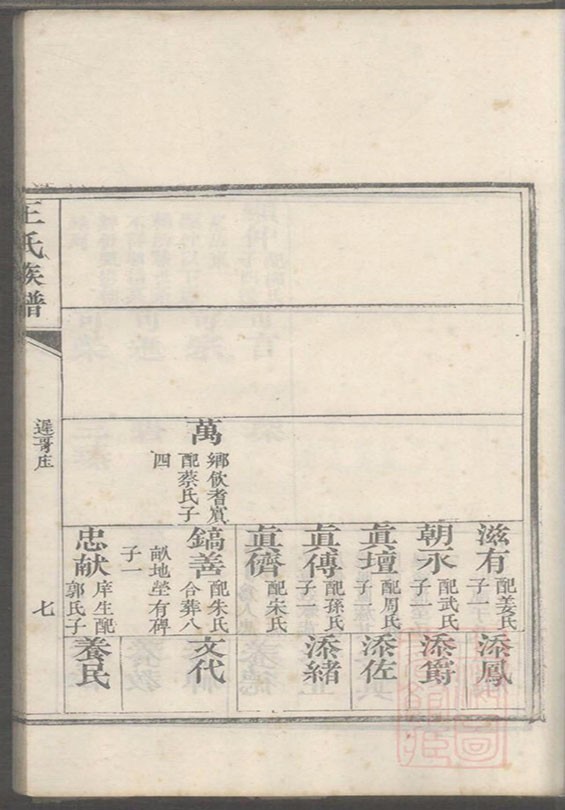 滋有
配姜氏
子一
添鳳
朝永
配武氏
子一
添爵
眞壇
配周氏
子一
添佐
眞傅
配孫氏
子一
添緒
眞儕
配宋氏
萬
鄉飲耆賓
配蔡氏子
四
鎬善
配朱氏
合葬八
畝地塋有碑
子一
文代
忠献
庠生配
郭氏子
養民
王氏族譜
遲哥庄
七